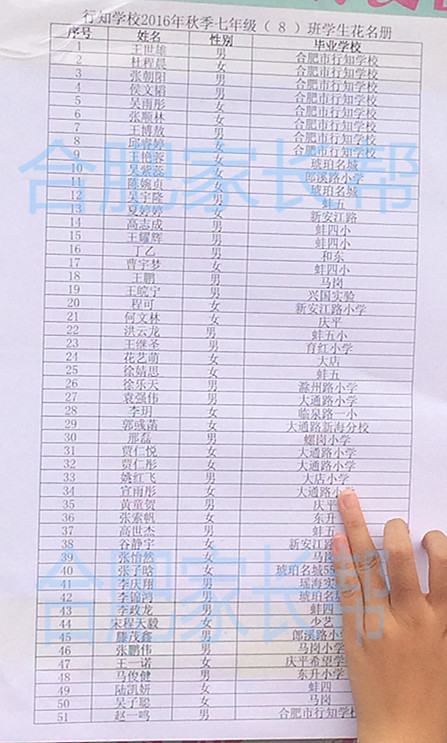 行知学校2016年秋季七年级（8）班学生花名册
序号 姓名 性别 毕业学校
1 王世雄 男 合肥市行知学校
2 杜程晨 女 合肥市行知学校
3 张朝阳 男 合肥市行知学校
4 侯文韬 男 合肥市行知学校
5 吴雨彤 女 合肥市行知学校
6 张顺林 女 合肥市行知学校
7 王博敖 男 合肥市行知学校
8 邱睿婷 女 合肥市行知学校
9 王艳菱 女 琥珀名城
10 吴紫蕊 女 郎溪路小学
11 陈婉贞 女 琥珀名城
12 吴宇隆 男 蚌五
13 夏婷婷 女 新安江路
14 高志成 男 蚌四小
15 王耀辉 男 蚌四小
16 丁乙 男 和东
17 曹宇梦 女 蚌四小
18 王鹏 男 马岗
19 王皖宁 男 兴国实验
20 程可 女 新安江路小学
21 何文林 女 庆平
22 洪云龙 男 蚌五小
23 王继圣 男 育红小学
24 花艺萌 女 大店
25 徐婧思 女 蚌五
26 徐乐天 男 滁州路小学
27 袁强伟 男 大通路小学
28 李玥 女 临泉路一小
29 郭彧菡 女 大通路新海分校
30 那磊 男 螺岗小学
31 贾仁悦 女 大通路小学
32 贾仁彤 女 大通路小学
33 姚红飞 男 大店小学
34 宣雨彤 女 大通路小
35 黄童贺 男 庆平
36 张索帆 女 东升
37 高世杰 男 蚌五
38 谷静宇 女 新安江路
39 张怡然 女 马岗
40 张子晗 女 琥珀名城55
41 李庆翔 男 瑶海实
42 李锦鸿 男 琥珀名
43 李政龙 男 蚌四
44 宋程天毅 女 少艺
45 滕茂鑫 男 郎溪路小
46 张鹏伟 男 马岗小学
47 王一诺 女 庆平希望学
48 马俊健 男 东升小学
49 陆凯妍 女 蚌四
50 吴子聪 女 马岗
51 赵一鸣 男 合肥市行知学
合肥家长帮
合肥家长帮